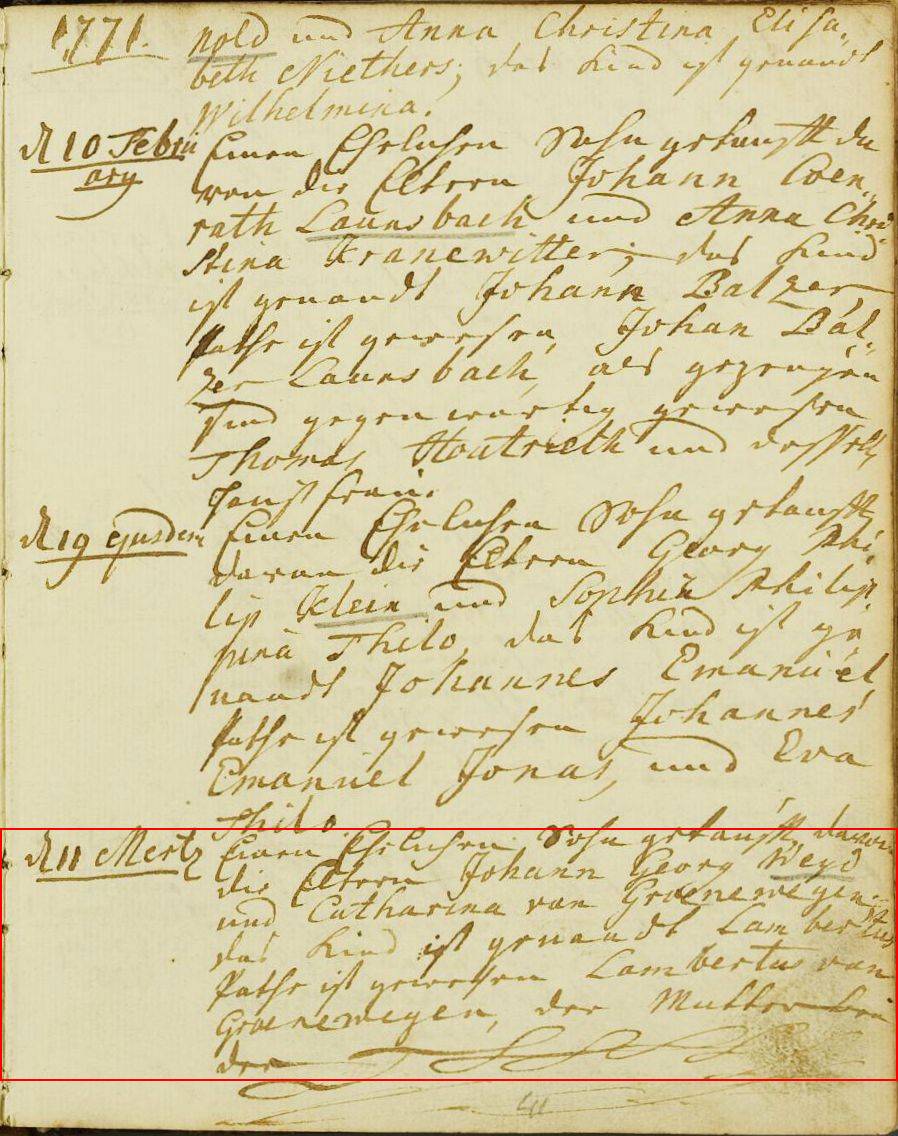 1771.
nold und Anna Christina Elisa„
beth Niethers; das Kind ist genandt
Wilhelmina.
d 10 Febru
ary
Einen Ehelichen Sohn getaufft da
von die Eltern Johann Coen„
rath Launsbach und Anna Chri
stina Kranewitter; das Kind
ist genandt Johann Balzer
Pathe ist gewesen Johan Bal„
zer Launsbach, als gezeugen
sind gegenwärtig gewesen
Thomas und desselb
Hausfrau.
d 19 ejusdem
Einen Ehelichen Sohn getaufft
davon die Eltern Georg Phi
lip Klein und Sophia Philip
pina Thilo, das Kind ist ge
nandt Johannes Emanuel
Pathe ist gewesen Johannes
Emanuel Jonas, und Eva
Thilo.
d 11 Mertz
Einen Ehelichen Sohn getaufft, davon
die Eltern Johann Georg Weyd
und Catharina van Groenewegen.
das Kind ist genandt Lambertus
Pathe ist gewesen Lambertus van
Groenewegen, der Mutter bru
der